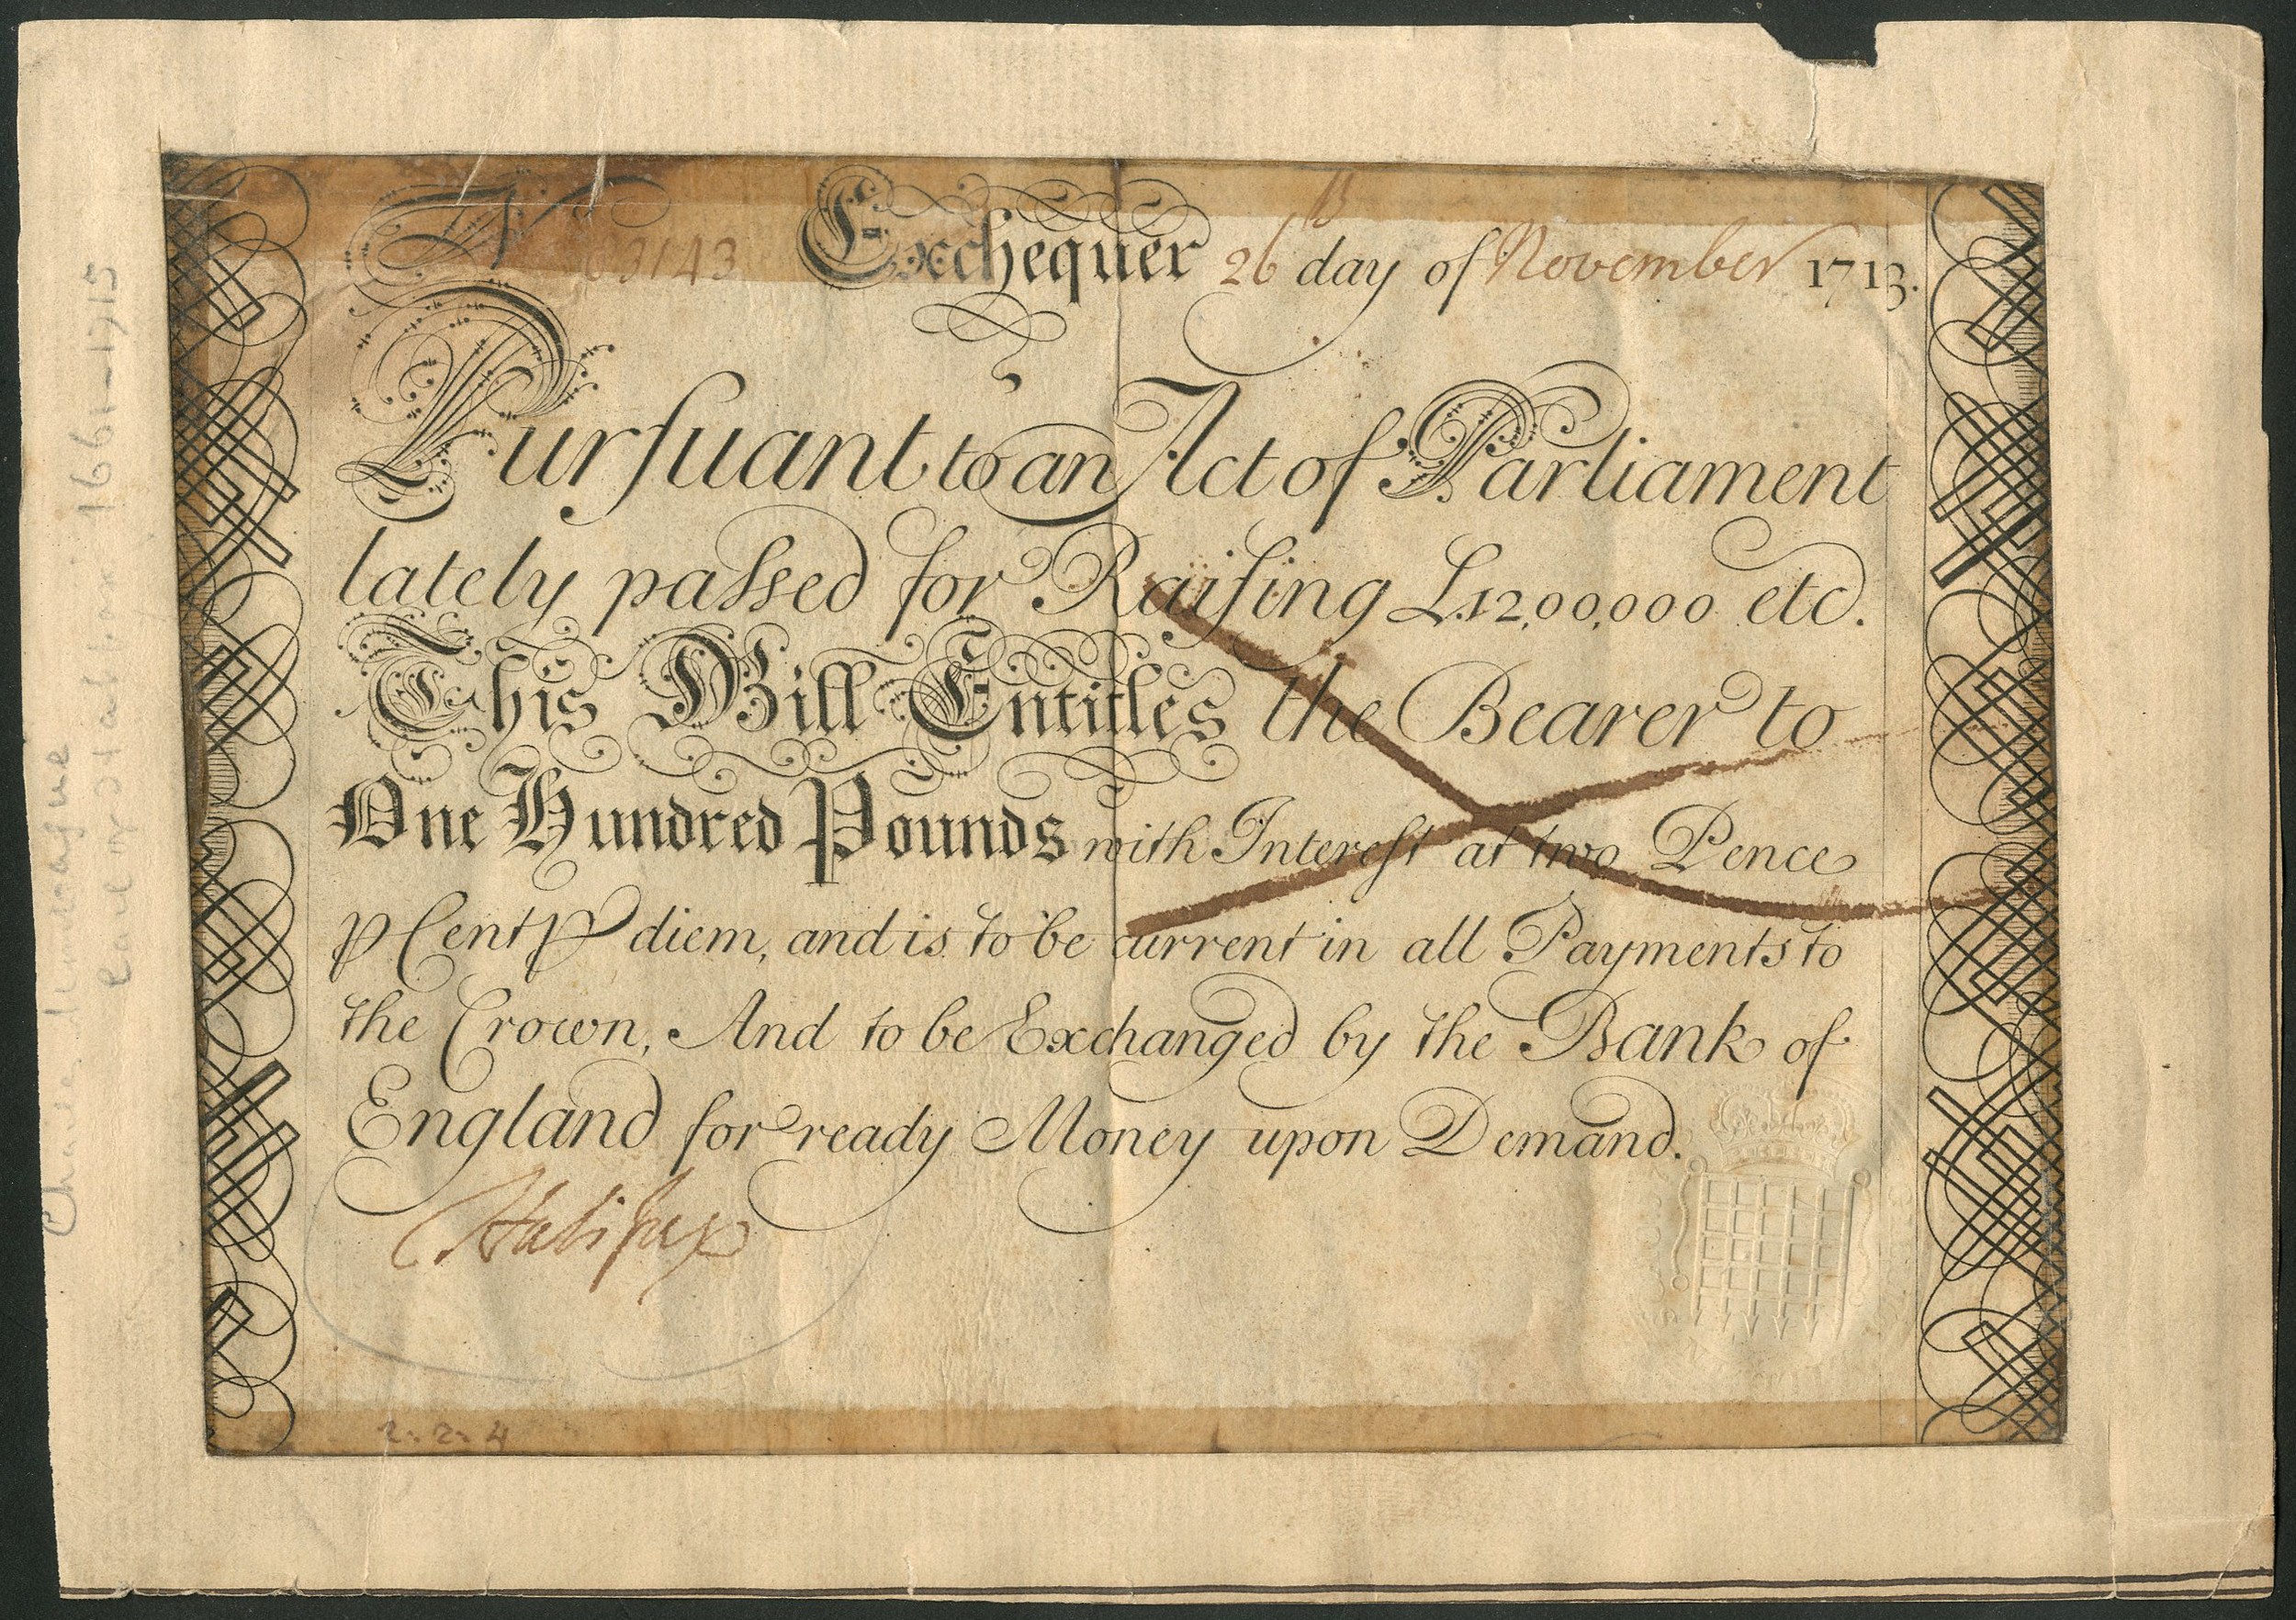 No 03143 Exchequer 26th day of November 1713.
Purſuant to an Act of Parliament
lately paſsed for Raiſing £.12,00,000 etc.
This Bill Entitles the Bearer to
One Hundred Pounds with Intereſt at two Pence
ꝑ Cent ꝑ diem, and is to be current in all Payments to
the Crown, And to be Exchanged by the Bank of
England for ready Money upon Demand.
Halifax
2. 2. 4
Charles Montague
Earl of Halifax 1661-1715